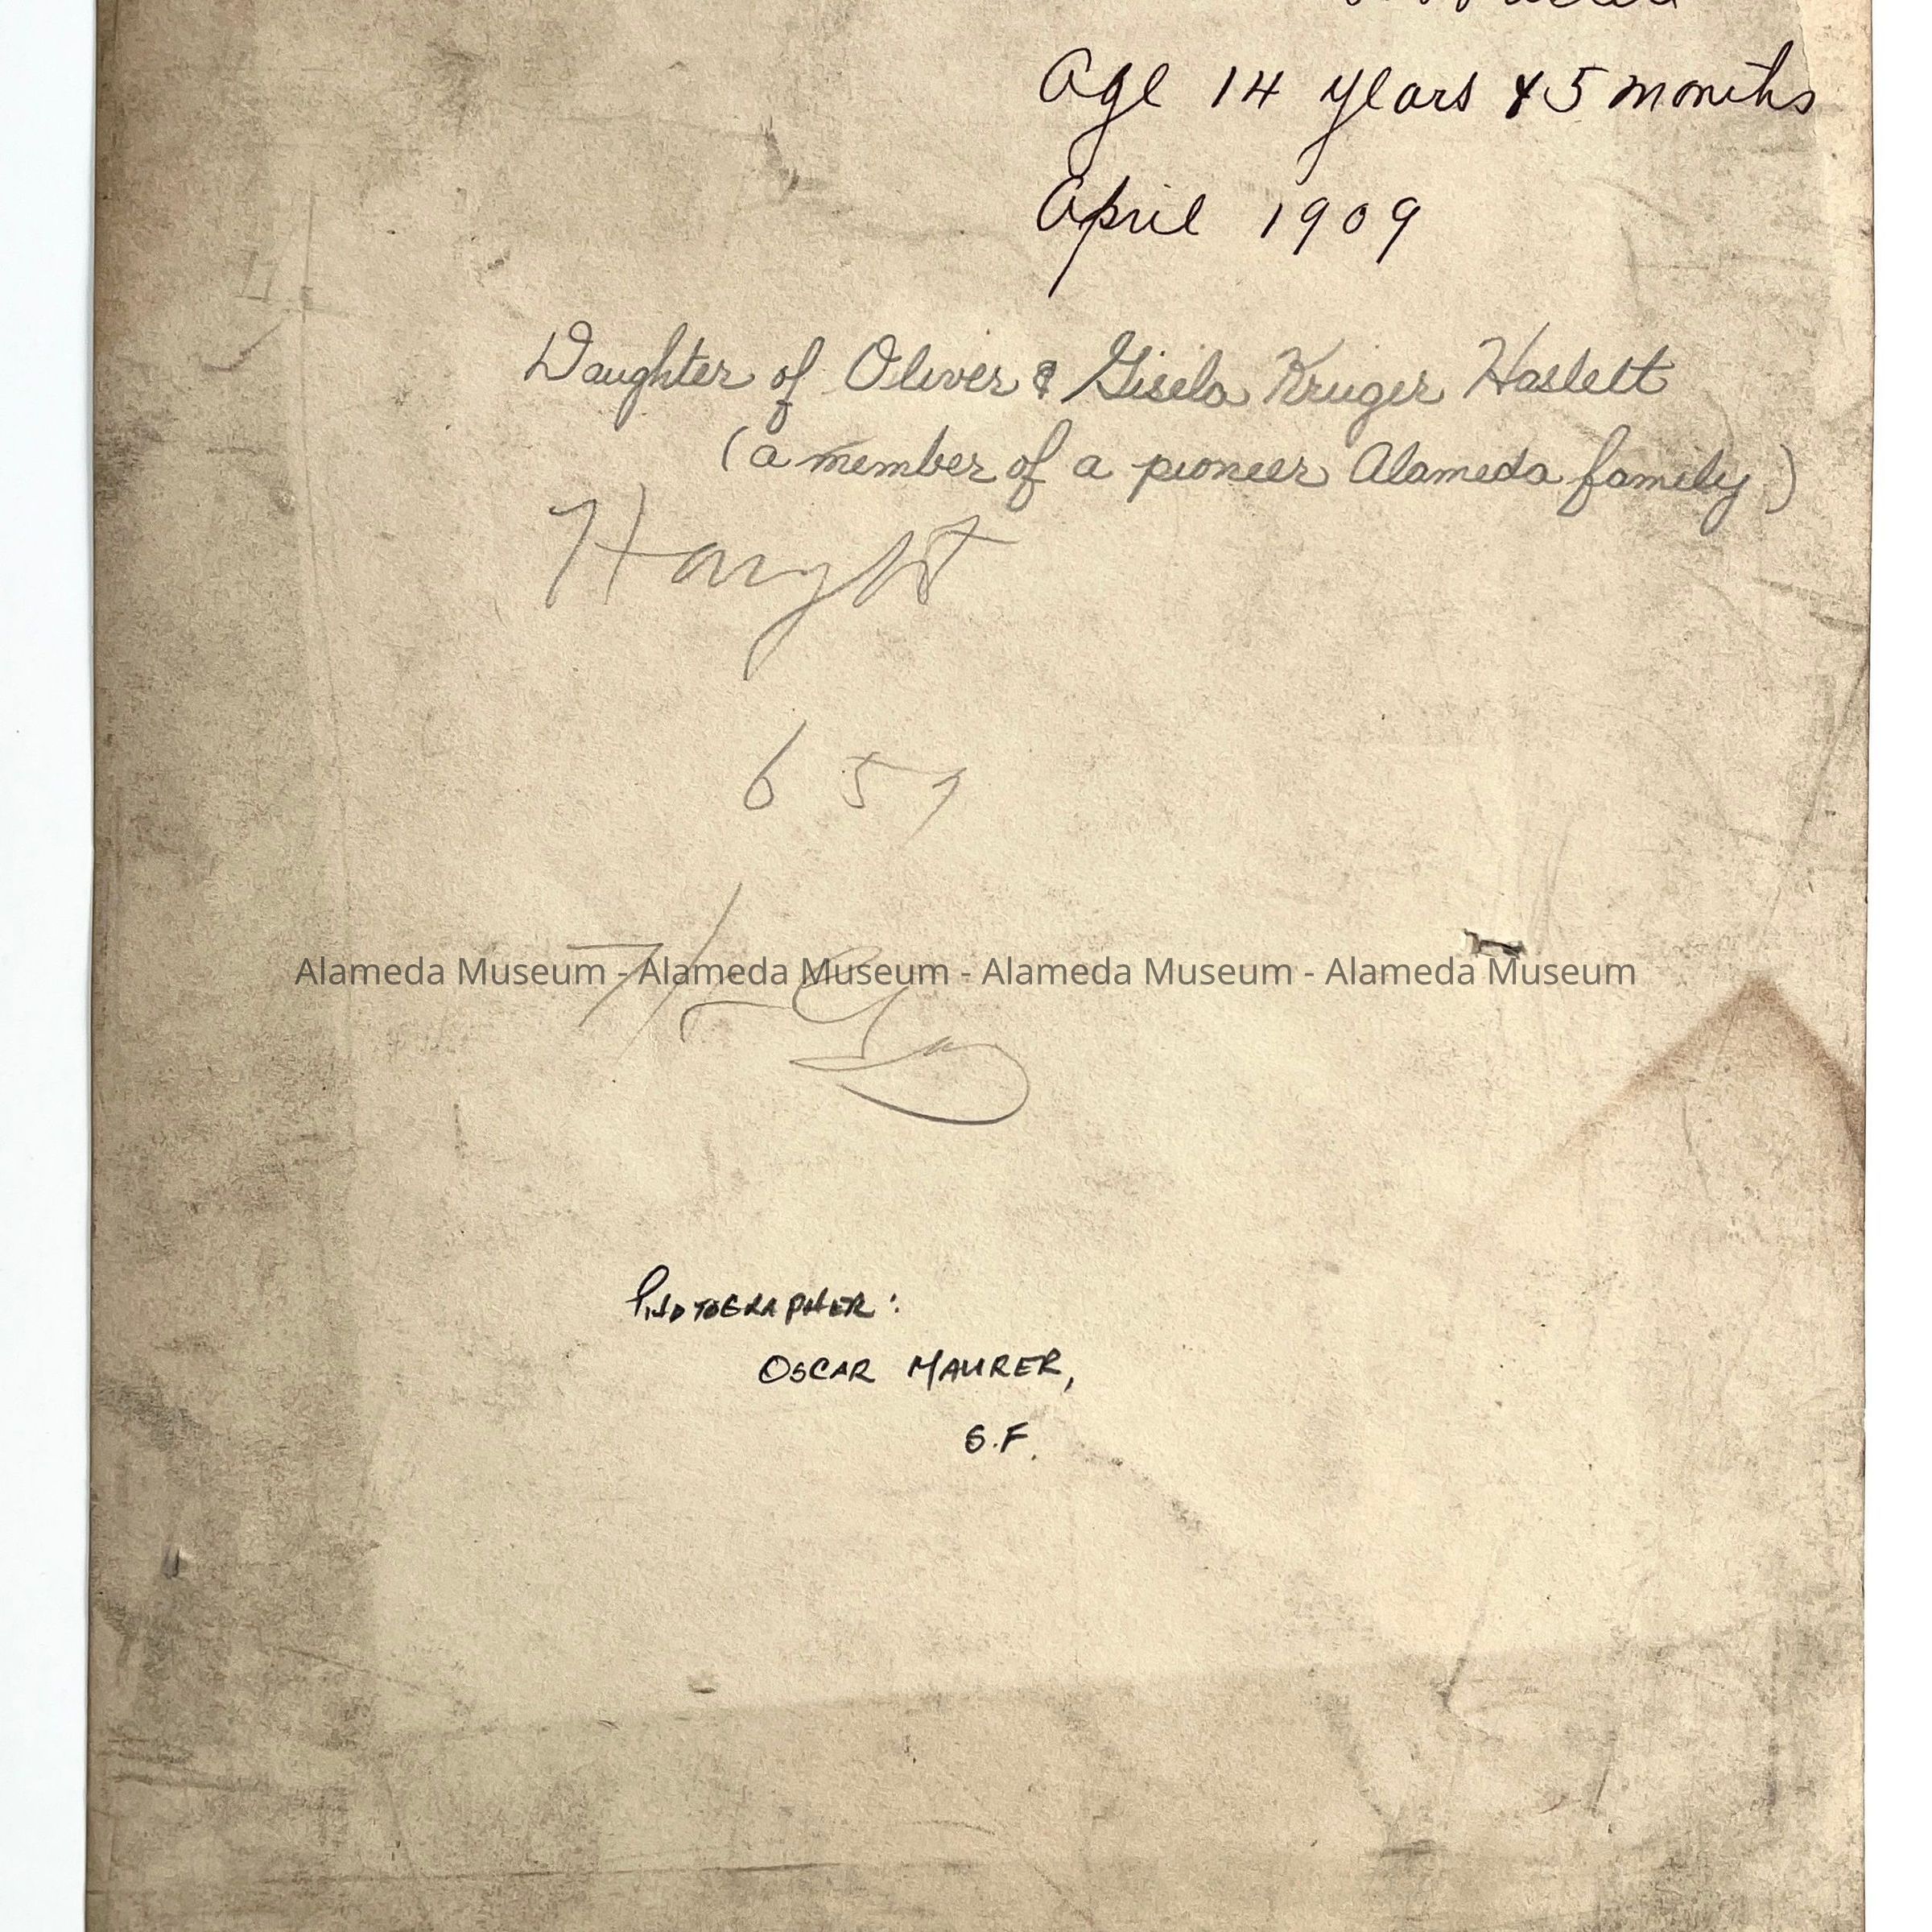 Age 14 years & 5 months
April 1909
Daughter of Oliver & Gisela Kruger Haslett
(a member of a pioneer Alameda family)
Haight
657
Alameda Museum - Alameda Museum - Alameda Museum - Alameda Museum
PHOTOGRAPHER:
OSCAR MAURER,
S.F.